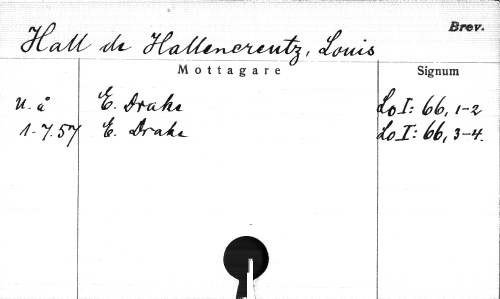 Brev.
Hall de Hallencreutz, Louis
Mottagare Signum
u. å E. Drake Lo I: 66, 1-2
1-7.57 E. Drake Lo I: 66, 3-4.